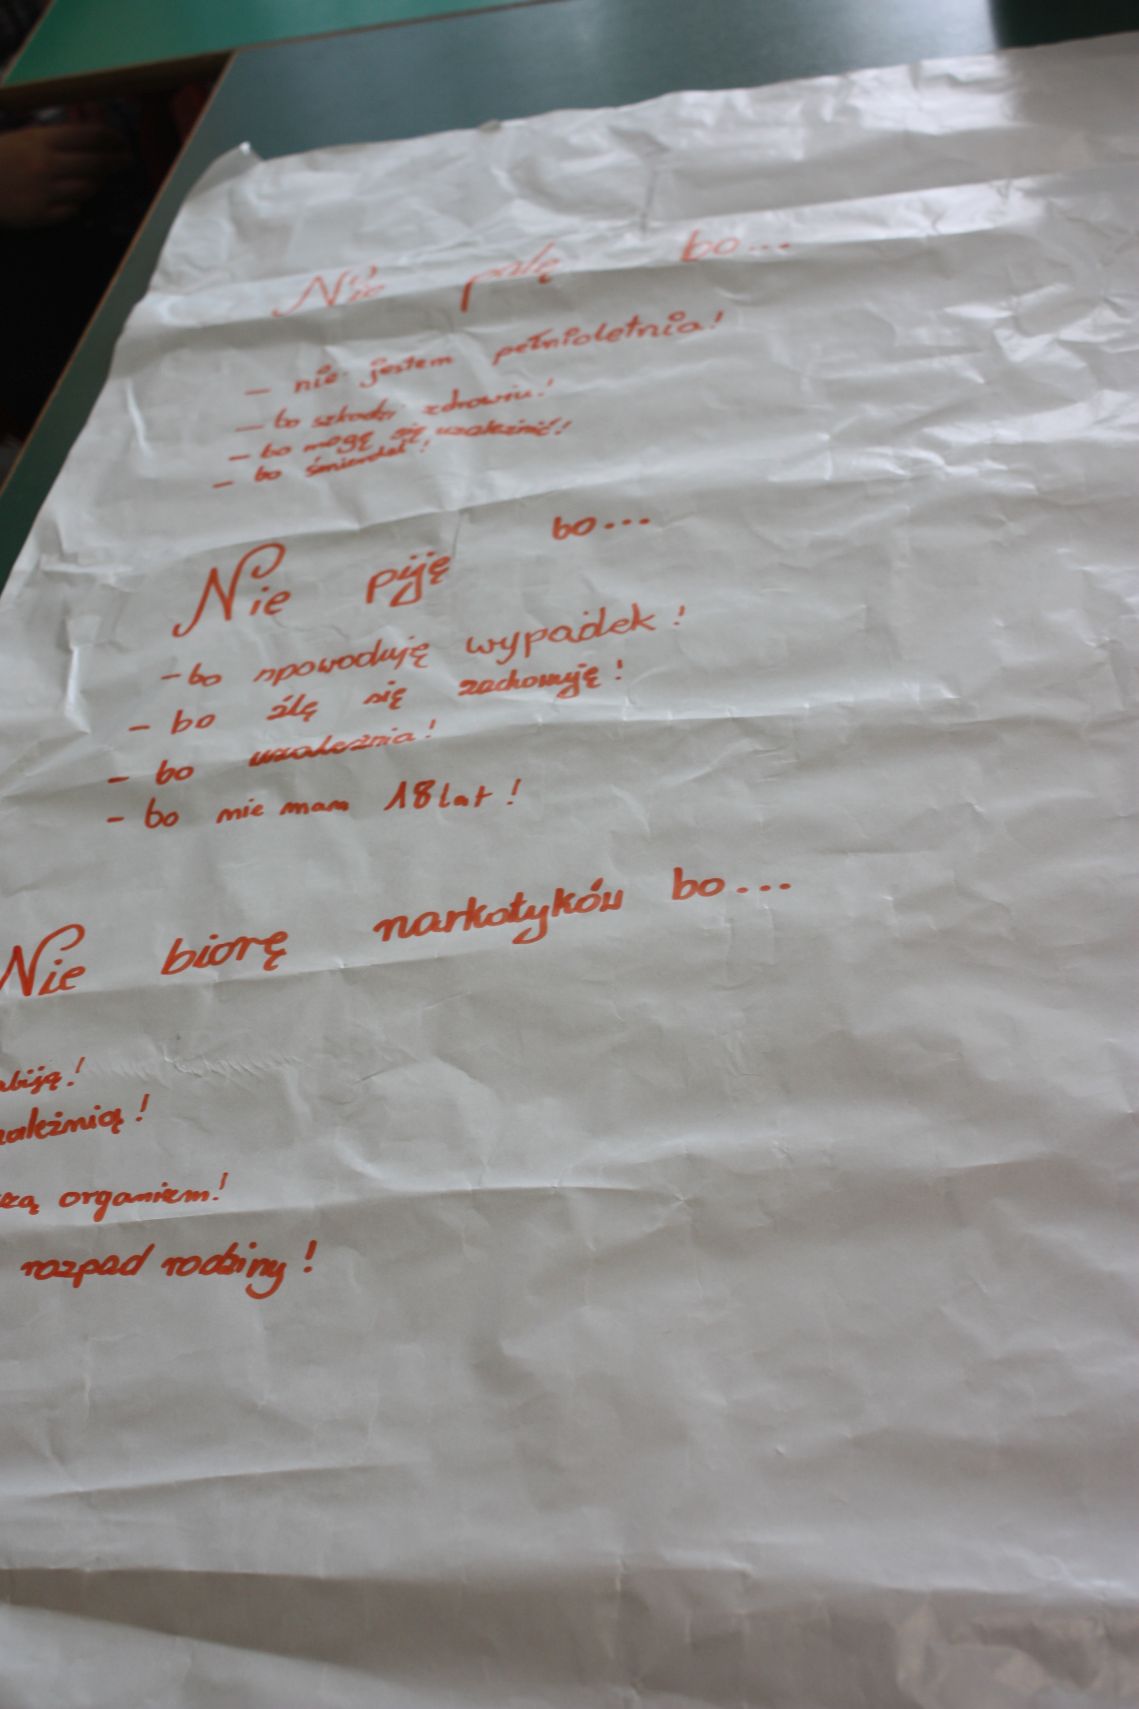 Nie palę bo...
- nie jestem pełnioletnia!
- bo szkodzi zdrowiu!
- bo mogę się uzależnić!
- bo śmierdzi!
Nie piję bo...
- bo spowoduję wypadek!
- bo źlę się zachowuję!
- bo uzależnia!
- bo nie mam 18 lat!
Nie biorę narkotyków bo...
abiją!
zależnią!
zą organizm!
rozpad rodziny!